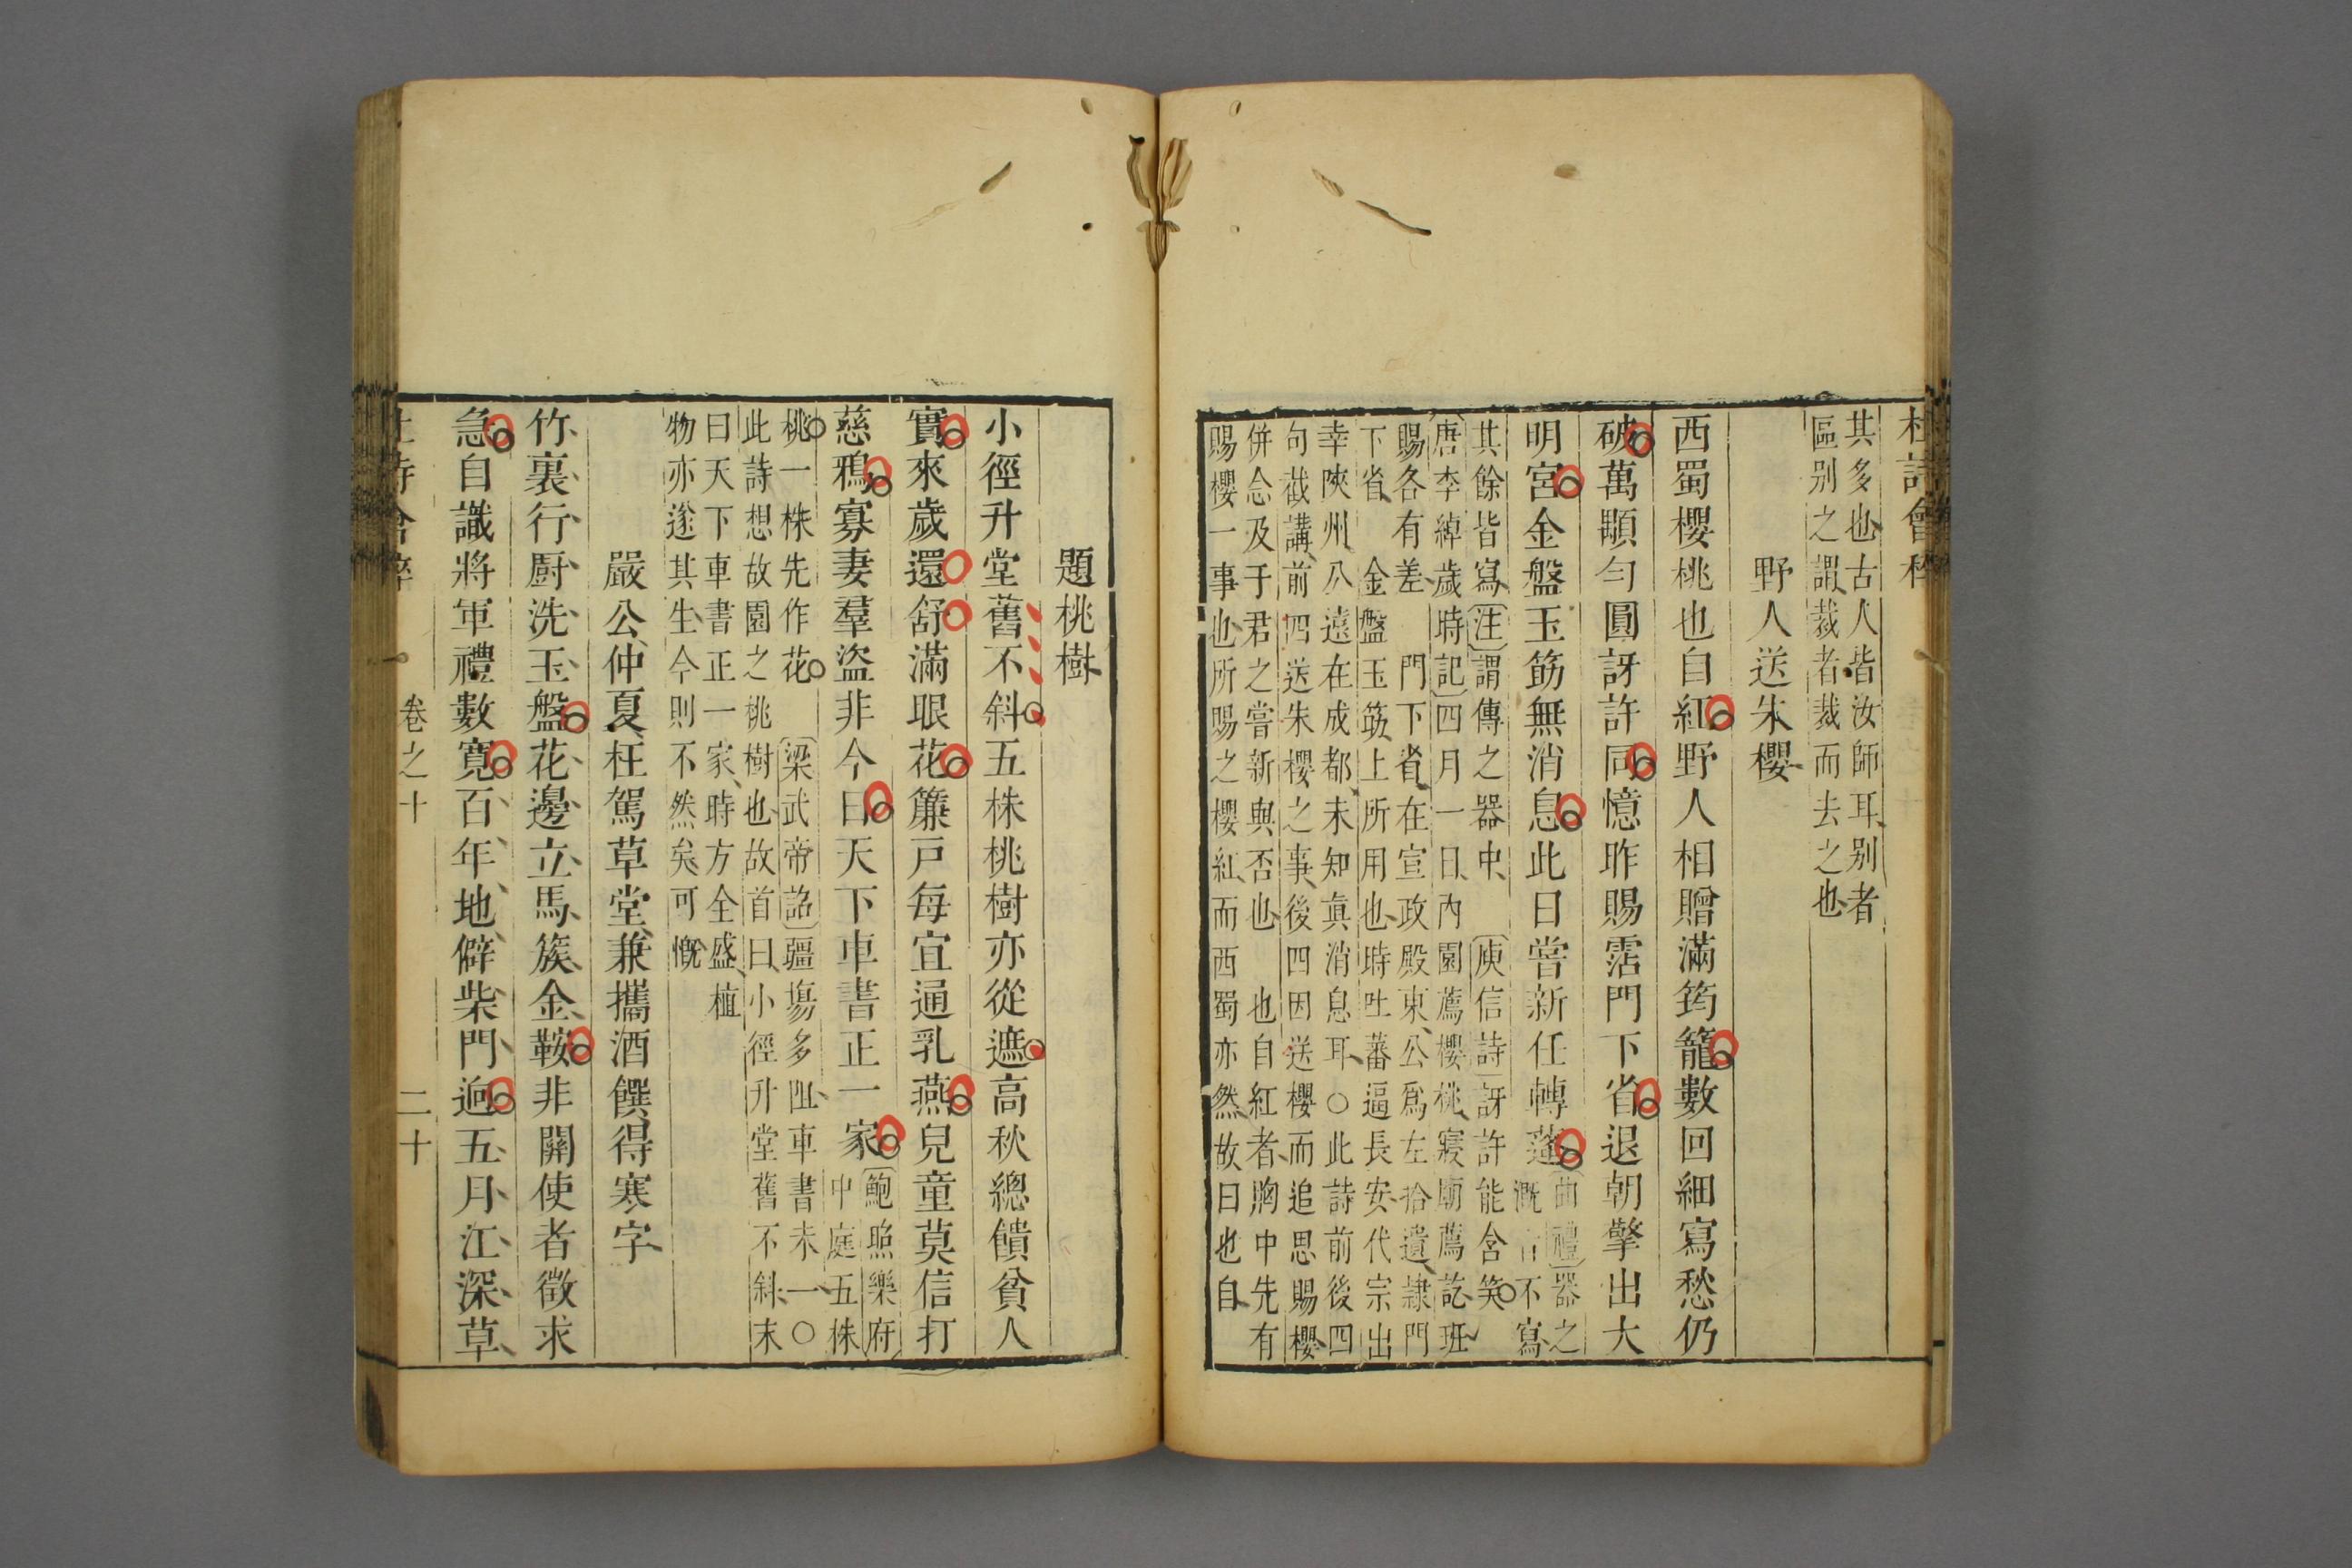 杜詩會稡
其多也古人皆汝師耳别者
區别之謂裁者裁而去之也
野人送朱櫻
西蜀櫻桃也自紅野人相贈滿筠籠數回細寫愁仍
破萬顆勻圓訝許同憶昨賜霑門下省退朝擎出大
明宮金盤玉筯無消息此日嘗新任轉蓬
曲禮器之
溉者不寫
其餘皆寫注謂傳之器中 庾信詩訝許能含笑
唐李綽歲時記四月一日内園薦櫻桃寢廟薦訖班
賜各有差 門下省在宣政殿東公爲左拾遺隷門
下省 金盤玉筯上所用也時吐蕃逼長安代宗出
幸陝州公遠在成都未知真消息耳○此詩前後四
句截講前四送朱櫻之事後四因送櫻而追思賜櫻
併念及于君之嘗新與否也 也自紅者胸中先有
賜櫻一事也所賜之櫻紅而西蜀亦然故曰也自
題桃樹
小徑升堂舊不斜五株桃樹亦從遮高秋總饋貧人
實來歲還舒滿眼花簾戸每宜通乳燕兒童莫信打
慈鴉寡妻羣盜非今日天下車書正一家
鮑照樂府
中庭五株
桃一株先作花 梁武帝詔疆塲多阻車書未一○
此詩想故園之桃樹也故首曰小徑升堂舊不斜末
曰天下車書正一家時方全盛植
物亦遂其生今則不然矣可慨
嚴公仲夏枉駕草堂兼攜酒饌得寒字
竹裏行厨洗玉盤花邊立馬簇金鞍非關使者徵求
急自識將軍禮數寬百年地僻柴門迥五月江深草
杜詩會稡 卷之十 二十